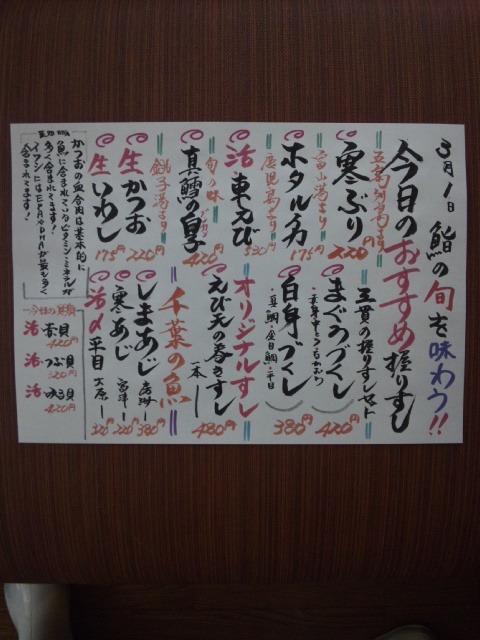 3月1日 鮨の旬を味わう!!
今日のおすすめ握りすし
五島列島より
寒ぶり 220円
富山湾より
ホタルイカ 175円
鹿児島より
活車えび 530円
旬の味
真鱈の白子 420円
銚子港より
生かつお 220円
生いわし 175円
三貫の握りすしセット
まぐろづくし 420円
白身づくし 380円
・真鯛・金目鯛・平目
オリジナルすし
えび天の巻きすし
一本 480円
千葉の魚
しまあじ 380円
寒あじ 220円
活〆平目 大原 320円
かつおの血合肉は基本的に
魚に含まれているビタミン・ミネラルが
多く含まれてます!
イワシにはEPAやDHAが最も多く
含まれてます!
活 420円
活 つぶ貝 320円
活 420円